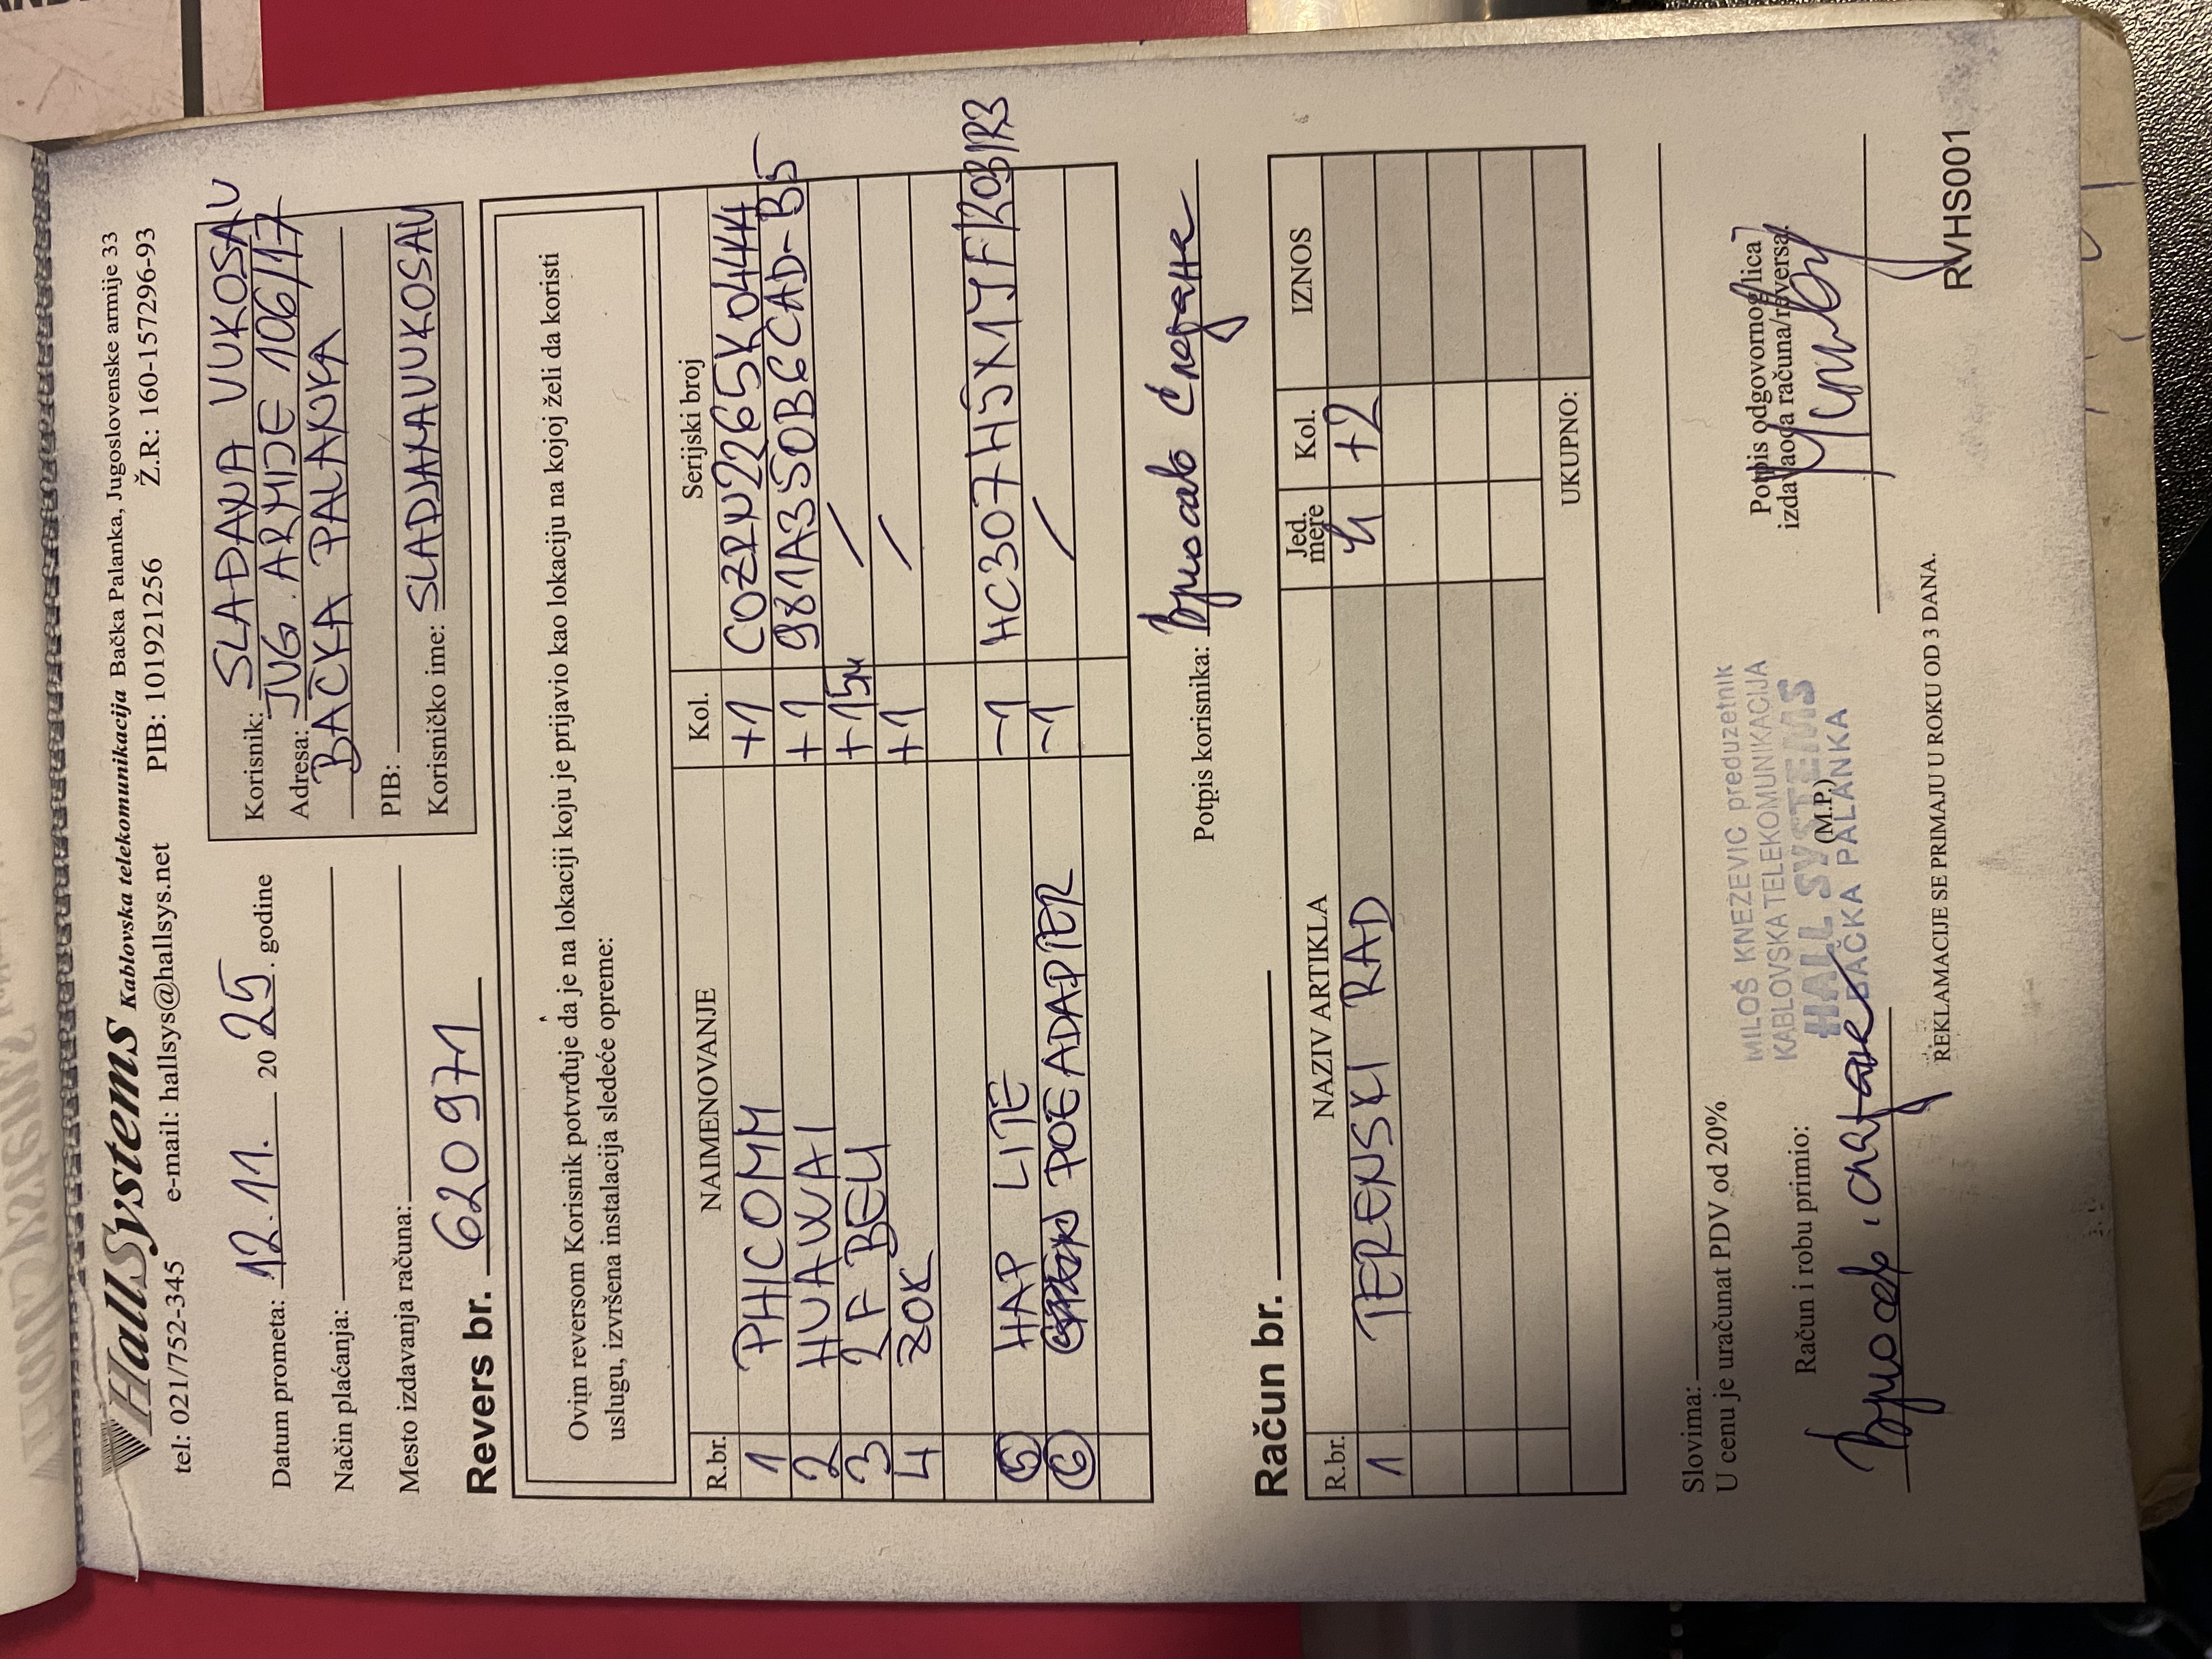 HallSystems Kablovska telekomunikacija Bačka Palanka, Jugoslovenske armije 33
tel: 021/752-345 e-mail: hallsys@hallsys.net PIB: 101921256 Ž.R: 160-157296-93
Datum prometa: 12.11. 2025. godine
Način plaćanja:
Mesto izdavanja računa:
Korisnik: SLAĐANA VUKOSAV
Adresa: JUG. ARMIJE 106/17
BAČKA PALANKA
PIB:
Korisničko ime: SLADJANAVUKOSAV
Revers br. 620971
Ovim reversom Korisnik potvrđuje da je na lokaciji koju je prijavio kao lokaciju na kojoj želi da koristi
uslugu, izvršena instalacija sledeće opreme:
R.br. NAIMENOVANJE Kol. Serijski broj
1 PHICOMM +1 COZRN2265K04444
2 HUAWAI +1 981A35OB6CAD-B5
3 2F BELI +15M /
4 ZOK +1 /
5 HAP LITE -1 HC307H5X1YF/R0B1R3
6 POE ADAPTER -1 /
Potpis korisnika: Вукосав Слађана
Račun br.
R.br. NAZIV ARTIKLA Jed. mere Kol. IZNOS
1 TERENSKI RAD h +2
UKUPNO:
Slovima:
U cenu je uračunat PDV od 20%
Račun i robu primio:
MILOŠ KNEŽEVIĆ preduzetnik
KABLOVSKA TELEKOMUNIKACIJA
HALL SYSTEMS
(M.P.)
BAČKA PALANKA
Potpis odgovornog lica
izdavaoca računa/reversa:
REKLAMACIJE SE PRIMAJU U ROKU OD 3 DANA.
RVHS001